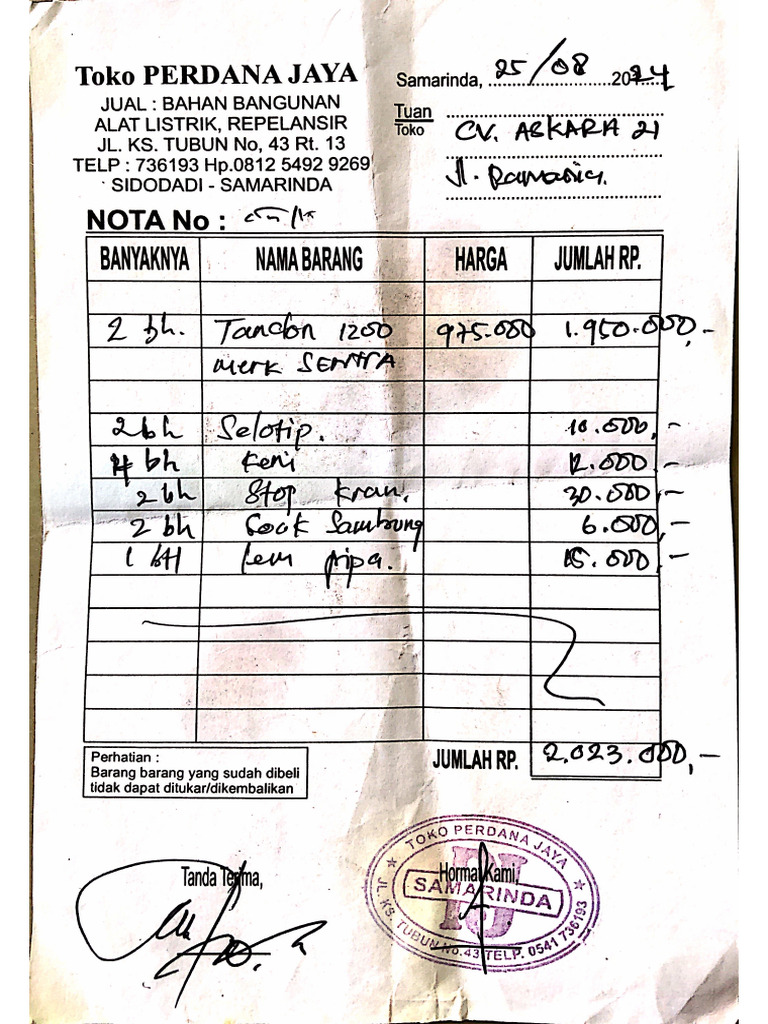 Toko PERDANA JAYA
JUAL : BAHAN BANGUNAN
ALAT LISTRIK, REPELANSIR
JL. KS. TUBUN No, 43 Rt. 13
TELP : 736193 Hp.0812 5492 9269
SIDODADI - SAMARINDA
Samarinda, 25/08 2024
Tuan
Toko
CV. ASKARA 21
Jl.
NOTA No :
BANYAKNYA NAMA BARANG HARGA JUMLAH RP.
2 bh. Tandon 1200 975.000 1.950.000,-
merk SENTRA
2 bh Selotip. 10.000,-
4 bh keni 12.000,-
2 bh Stop kran. 30.000,-
2 bh Sock Sambung 6.000,-
1 bH lem pipa. 15.000,-
Perhatian :
Barang barang yang sudah dibeli
tidak dapat ditukar/dikembalikan
JUMLAH RP. 2.023.000,-
Tanda Terima,
Hormat Kami,
TOKO PERDANA JAYA
PJ
SAMARINDA
JL. KS. TUBUN No.43 TELP. 0541 736193